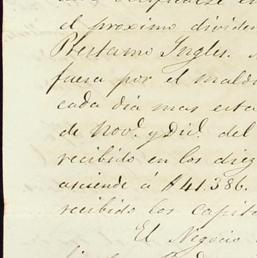 el proximo dividen
Prestamo Ingles.
fuera por el mald
cada dia mas esta
de Nov.e y Dic.e del
recibido en los diez
asciende á $41.386.
recibido los capit
El Negocio